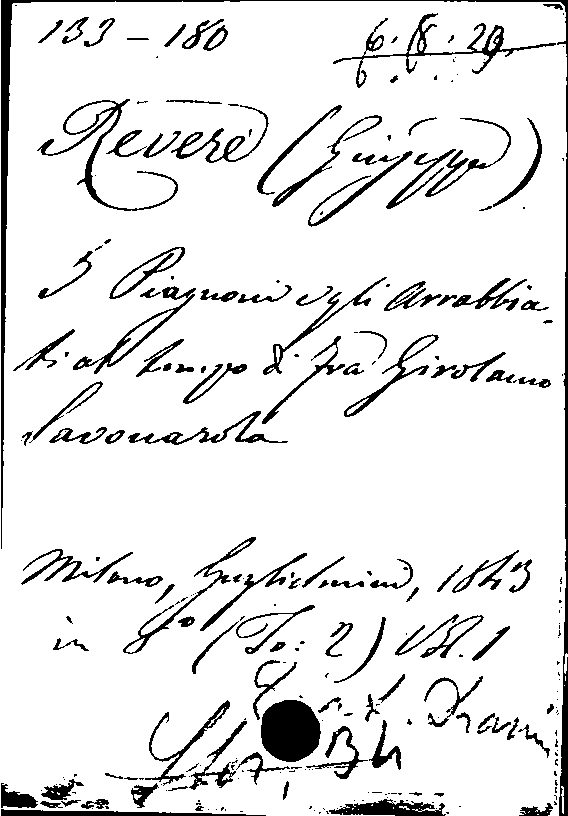 133 - 180
6. 8. 29
Revere (Giuseppe)
I Piagnoni e gli Arrabbia-
ti al tempo di Fra Girolamo
Savonarola
Milano, Guglielmini, 1843
in 8° (To: 2) Vol. 1
Dram
Stor,